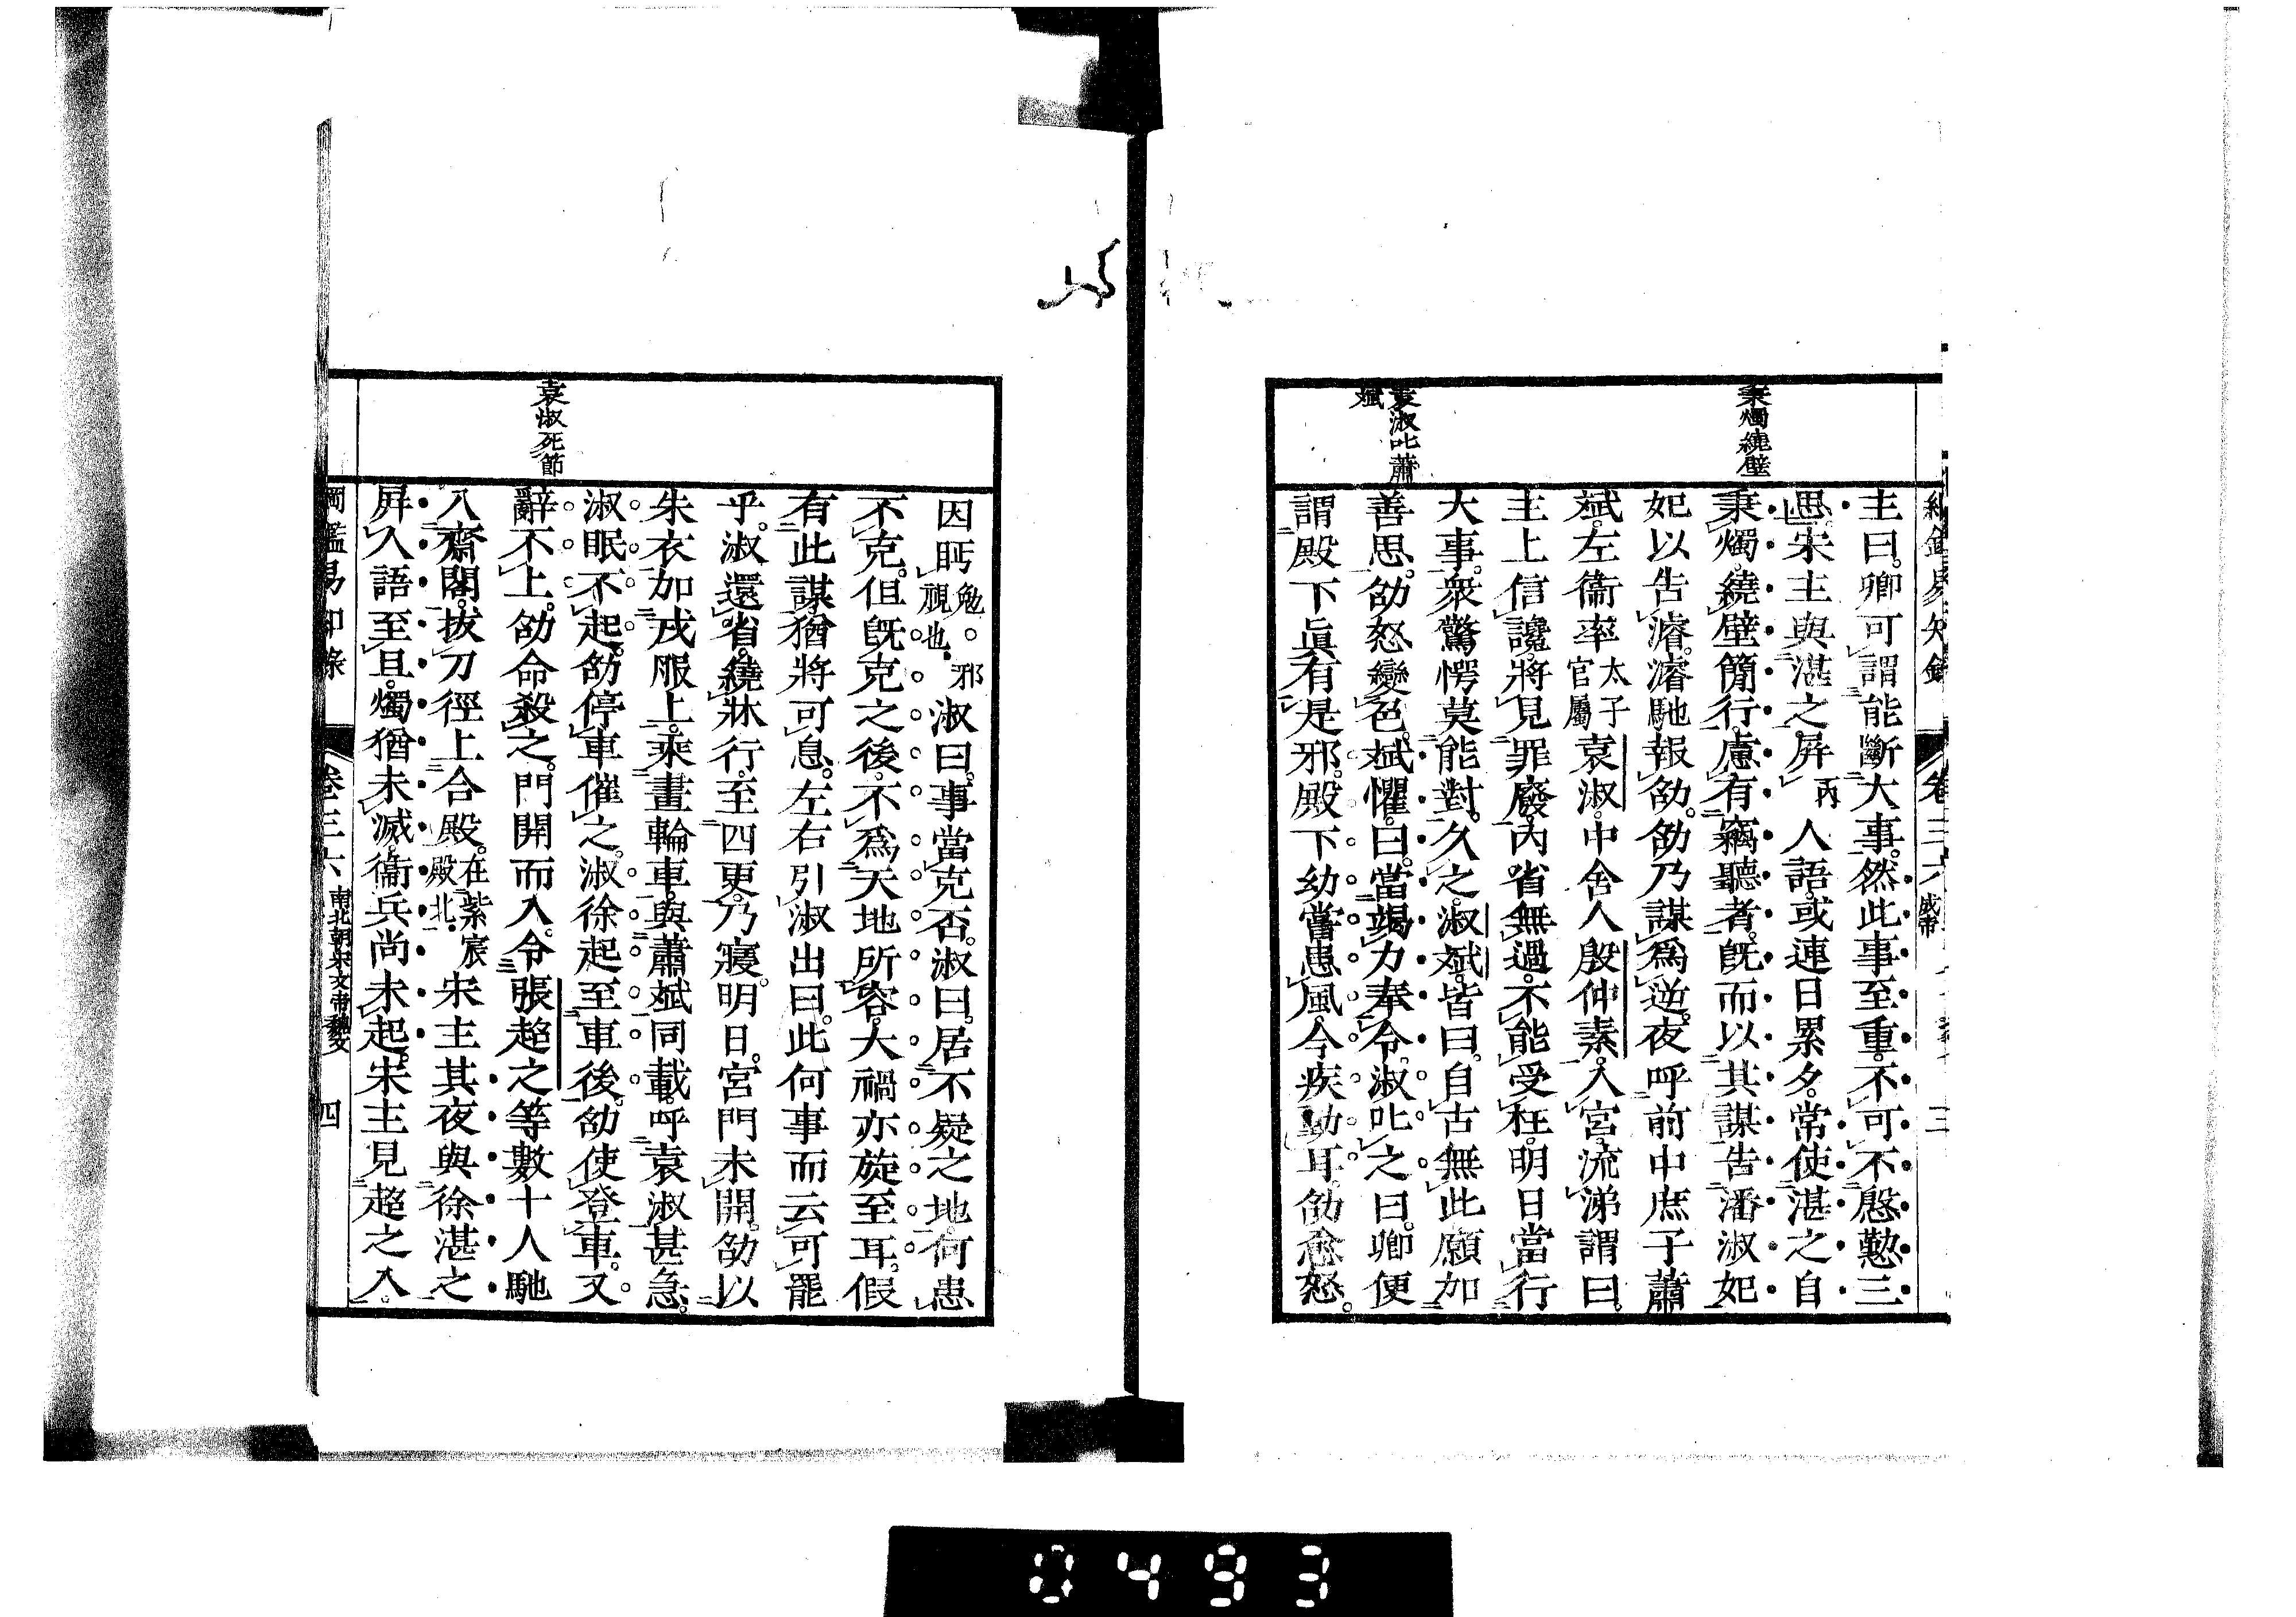 秉燭繞壁
袁淑叱蕭
斌
主曰。卿可謂能斷大事。然此事至重。不可不慇懃三
思。宋主與湛之。屏丙人語。或連日累夕。常使湛之自
秉燭。繞壁簡行。慮有竊聽者。旣而以其謀告潘淑妃
妃以告濬。濬馳報劭。劭乃謀爲逆。夜呼前中庶子蕭
斌。左衞率太子官屬袁淑。中舍人殷仲素。入宮。流涕謂曰。
主上信讒。將見罪廢。內省無過。不能受枉。明日當行
大事。衆驚愕莫能對。久之。淑斌。皆曰。自古無此。願加
善思。劭怒變色。斌懼。曰。當竭力奉令。淑叱之曰。卿便
謂殿下眞有是邪。殿下幼嘗患風。今疾動耳。劭愈怒。
卷三六
三
袁淑死節
因眄勉。視也。邪淑曰。事當克否。淑曰。居不疑之地。何患
不克。但旣克之後。不爲天地所容。大禍亦旋至耳。假
有此謀。猶將可息。左右引淑出曰。此何事而云可罷
乎。淑還省。繞牀行。至四更。乃寢。明日。宮門未開。劭以
朱衣加戎服上。乘畫輪車。與蕭斌同載。呼袁淑甚急。
淑眠不起。劭停車催之。淑徐起至車後。劭使登車。又
辭不上。劭命殺之。門開而入。令張超之等數十人馳
入齋閣。拔刀徑上合殿。在紫宸殿北。宋主其夜與徐湛之
屏人語至旦。燭猶未滅。衞兵尚未起。宋主見超之入。
綱鑑易知錄 卷三六 南北朝宋文帝 四
0493